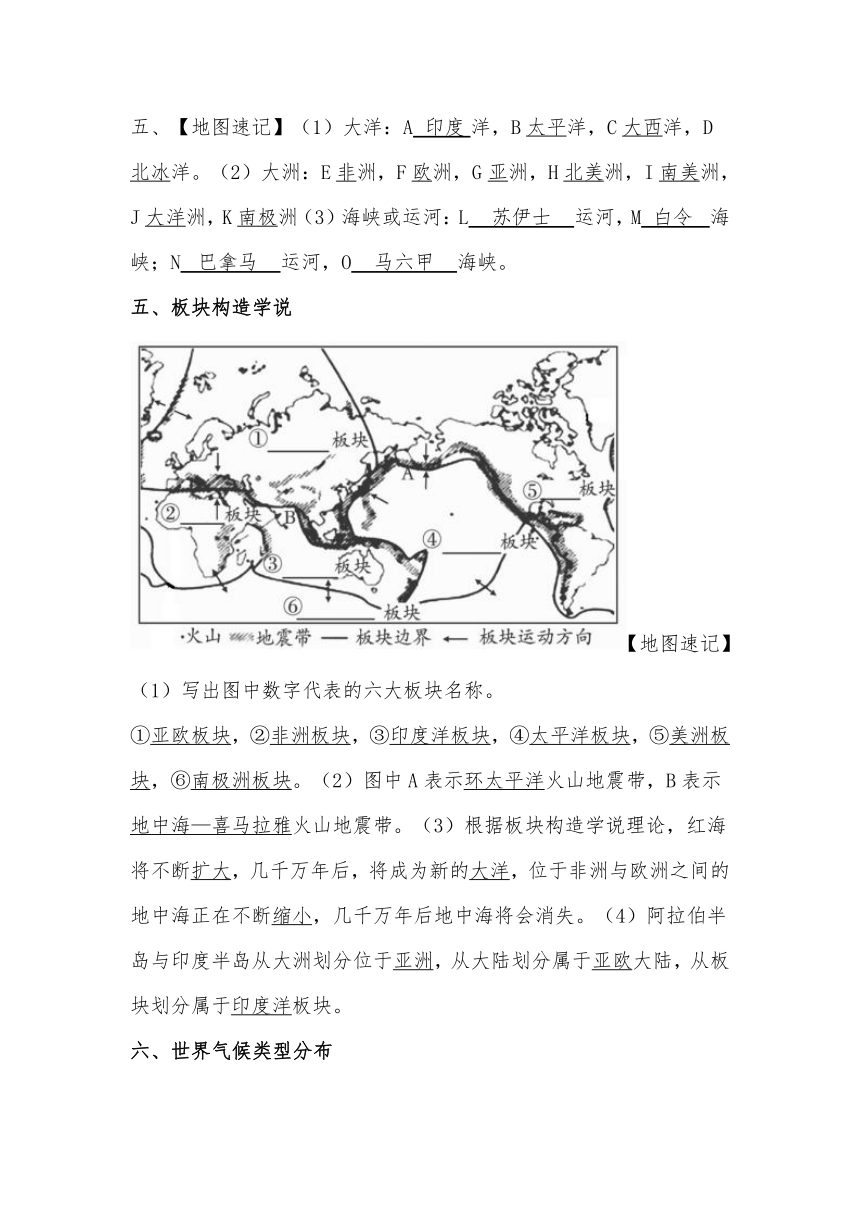 五、【地图速记】(1)大洋:A 印度 洋,B 太平洋,C 大西洋,D
北冰洋。(2)大洲:E 非洲,F 欧洲,G 亚洲,H 北美洲,I 南美洲,
J 大洋洲,K 南极洲(3)海峡或运河:L 苏伊士 运河,M 白令 海
峡;N 巴拿马 运河,O 马六甲 海峡。
五、板块构造学说
①____板块
A
⑤____板块
②____板块
B
④____板块
③____板块
⑥____板块
·火山 地震带 — 板块边界 ← 板块运动方向
【地图速记】
(1)写出图中数字代表的六大板块名称。
①亚欧板块,②非洲板块,③印度洋板块,④太平洋板块,⑤美洲板
块,⑥南极洲板块。(2)图中 A 表示环太平洋火山地震带,B 表示
地中海—喜马拉雅火山地震带。(3)根据板块构造学说理论,红海
将不断扩大,几千万年后,将成为新的大洋,位于非洲与欧洲之间的
地中海正在不断缩小,几千万年后地中海将会消失。(4)阿拉伯半
岛与印度半岛从大洲划分位于亚洲,从大陆划分属于亚欧大陆,从板
块划分属于印度洋板块。
六、世界气候类型分布